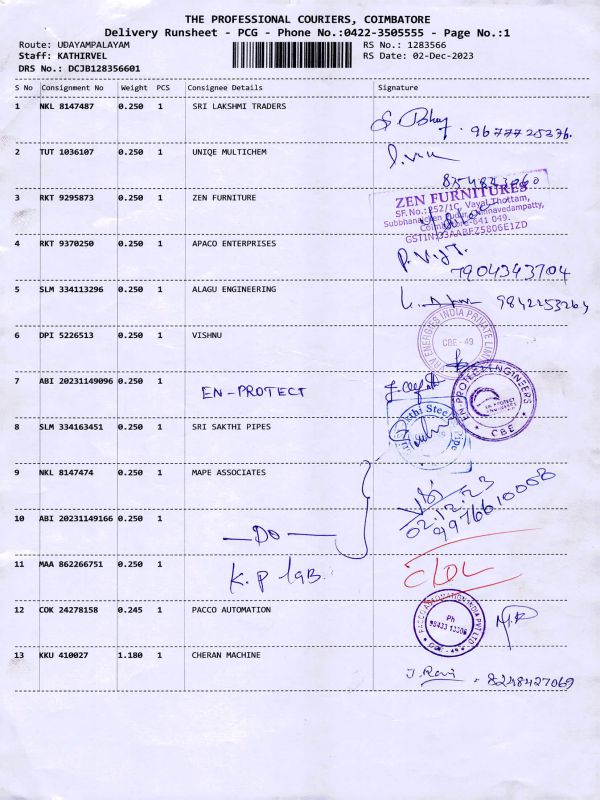 THE PROFESSIONAL COURIERS, COIMBATORE
Delivery Runsheet - PCG - Phone No.:0422-3505555 - Page No.:1
Route: UDAYAMPALAYAM RS No.: 1283566
Staff: KATHIRVEL RS Date: 02-Dec-2023
DRS No.: DCJB128356601
S No Consignment No Weight PCS Consignee Details Signature
1 NKL 8147487 0.250 1 SRI LAKSHMI TRADERS
2 TUT 1036107 0.250 1 UNIQE MULTICHEM
3 RKT 9295873 0.250 1 ZEN FURNITURE
ZEN FURNITURES
SF.No.:252/1C, Vayal Thottam,
Coimbatore-641 049.
4 RKT 9370250 0.250 1 APACO ENTERPRISES
7904343704
5 SLM 334113296 0.250 1 ALAGU ENGINEERING
6 DPI 5226513 0.250 1 VISHNU
ENERGIES INDIA PRIVATE
CBE - 49
7 ABI 20231149096 0.250 1 EN-PROTECT
EN-PROTECT ENGINEERS
CBE
8 SLM 334163451 0.250 1 SRI SAKTHI PIPES
9 NKL 8147474 0.250 1 MAPE ASSOCIATES
02.12.23
10 ABI 20231149166 0.250 1
DO
11 MAA 862266751 0.250 1 K.P lab
12 COK 24278158 0.245 1 PACCO AUTOMATION
PACCO AUTOMATION INDIA PVT LTD
Ph
CBE-49
13 KKU 410027 1.180 1 CHERAN MACHINE
J. Ravi 8248427069